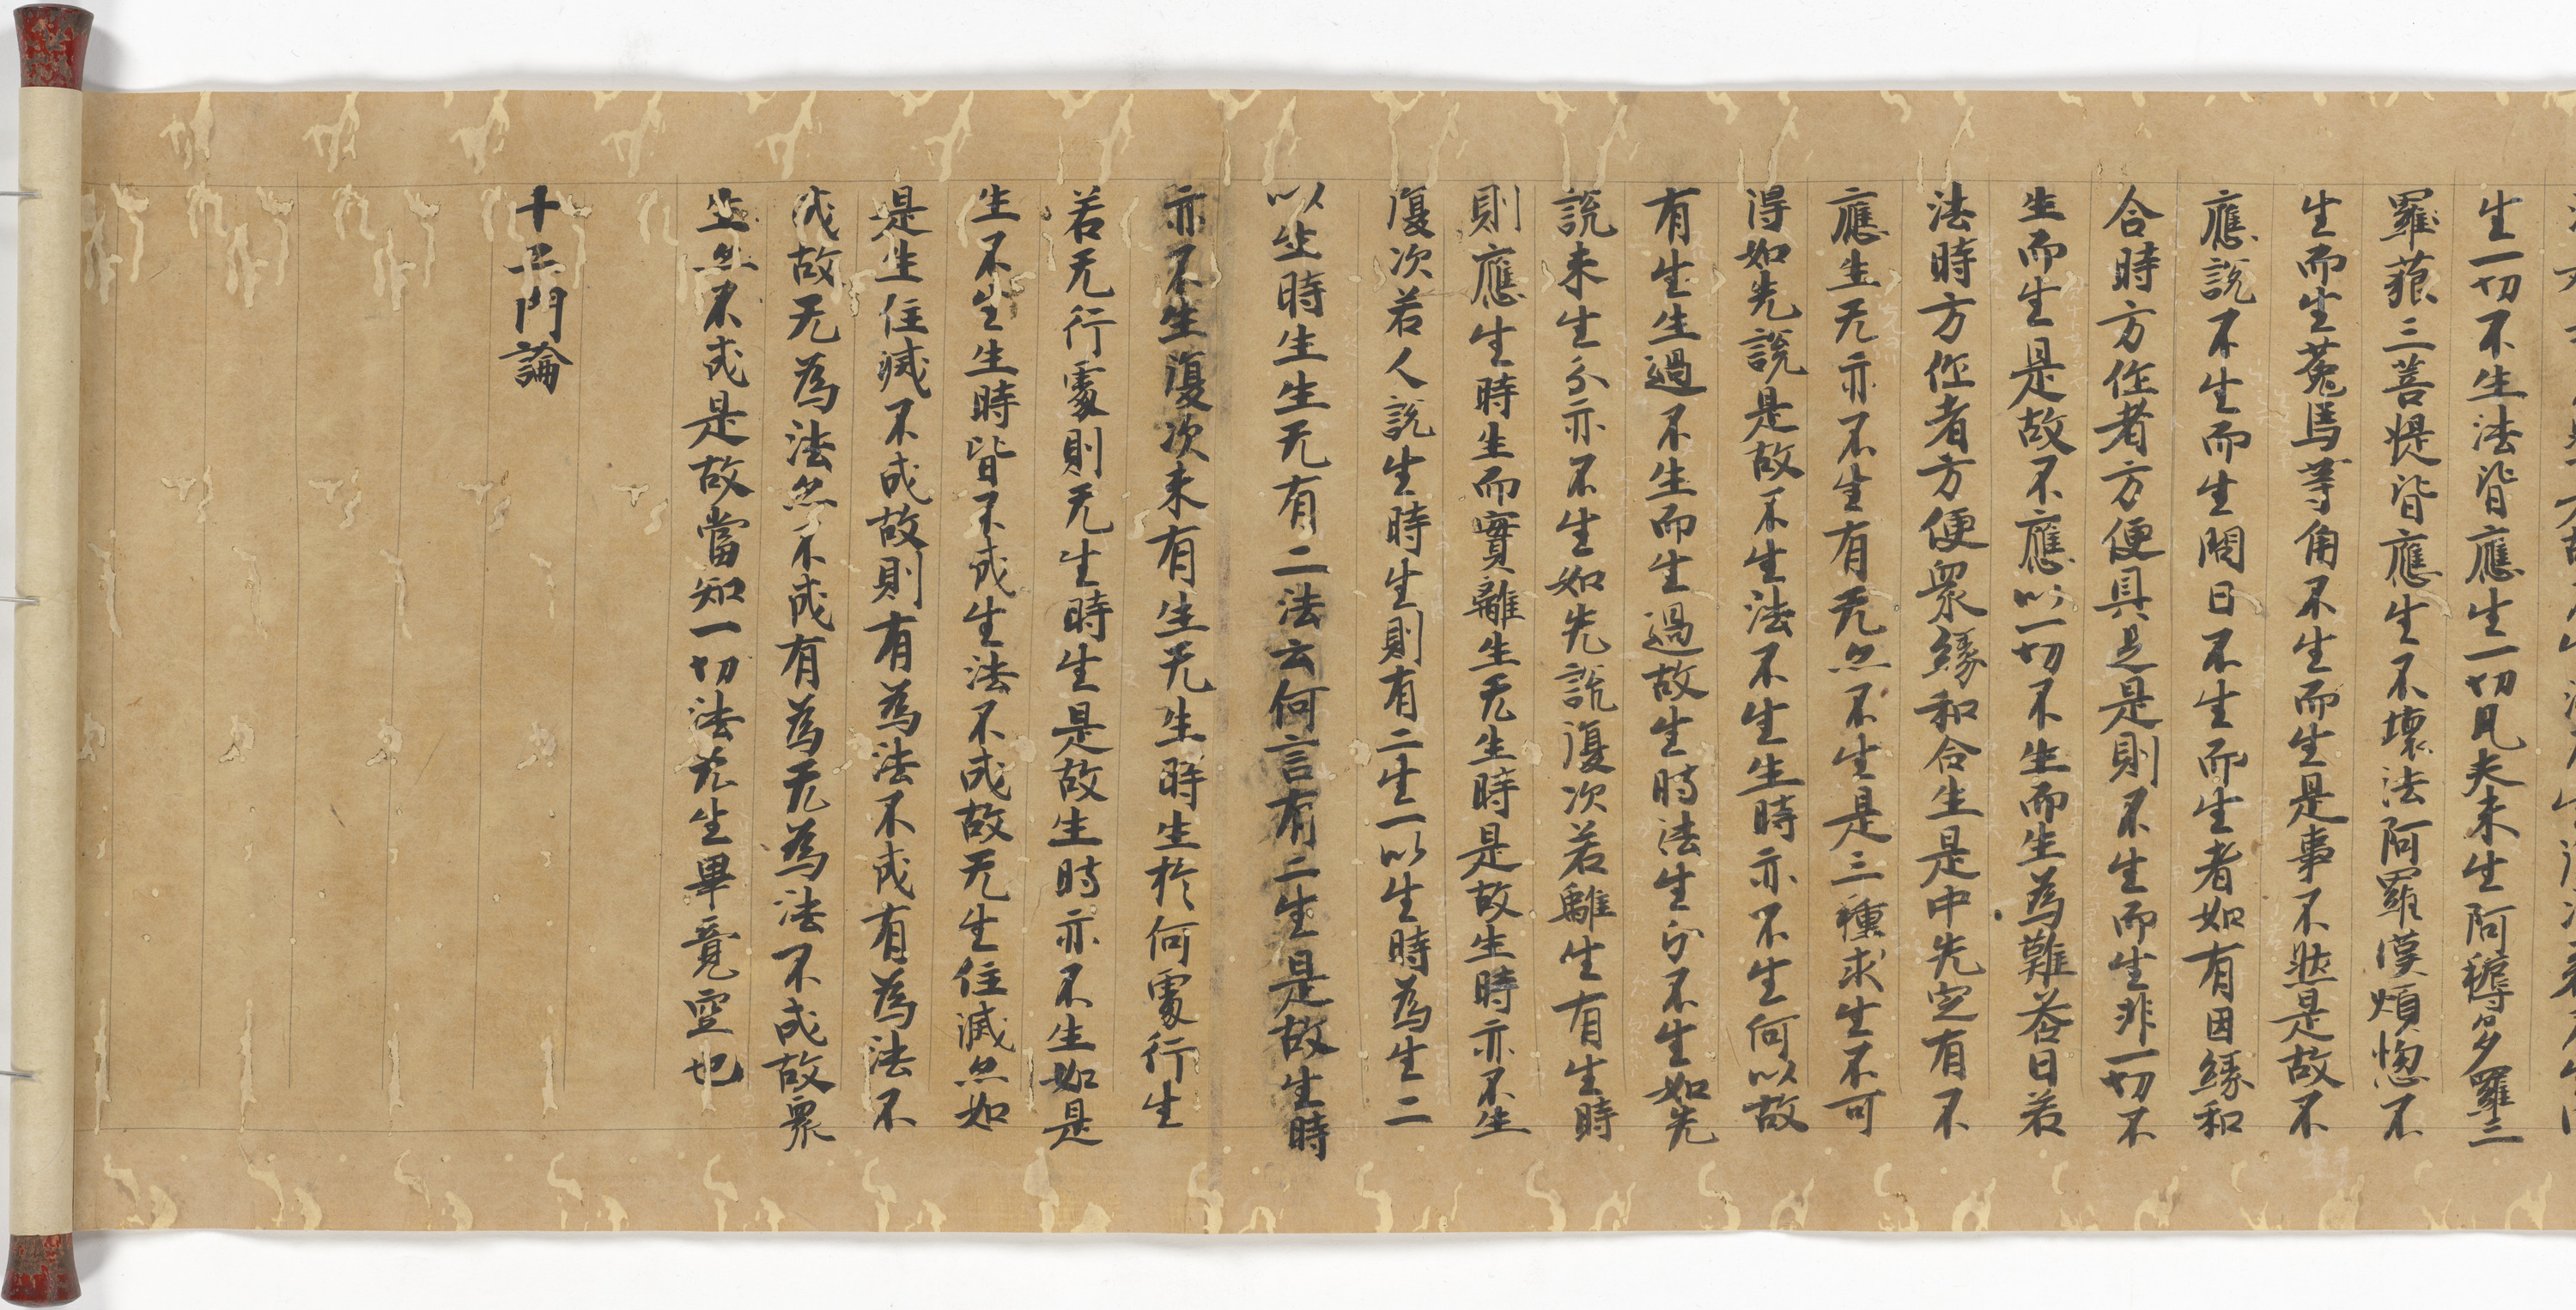 生一切不生法皆應生一切凡夫未生阿耨多羅三
羅藐三菩提皆應生不壞法阿羅漢煩惱不
生而生菟馬等角不生而生是事不然是故不
應說不生而生問曰不生而生者如有因緣和
合時方作者方便具足是則不生而生非一切不
生而生是故不應以一切不生而生為難荅曰若
法時方作者方便眾緣和合生是中先定有不
應生无亦不生有无亦不生是三種求生不可
得如先說是故不生法不生生時亦不生何以故
有生生過不生而生過故生時法生分不生如先
說未生分亦不生如先說復次若離生有生時
則應生時生而實離生无生時是故生時亦不生
復次若人說生時生則有二生一以生時為生二
以生時生生无有二法云何言有二生是故生時
亦不生復次未有生无生時生於何處行生
若无行處則无生時生是故生時亦不生如是
生不生生時皆不成生法不成故无生住滅亦如
是生住滅不成故則有為法不成有為法不
成故无為法亦不成有為无為法不成故眾
生亦不成是故當知一切法无生畢竟空也
十二門論